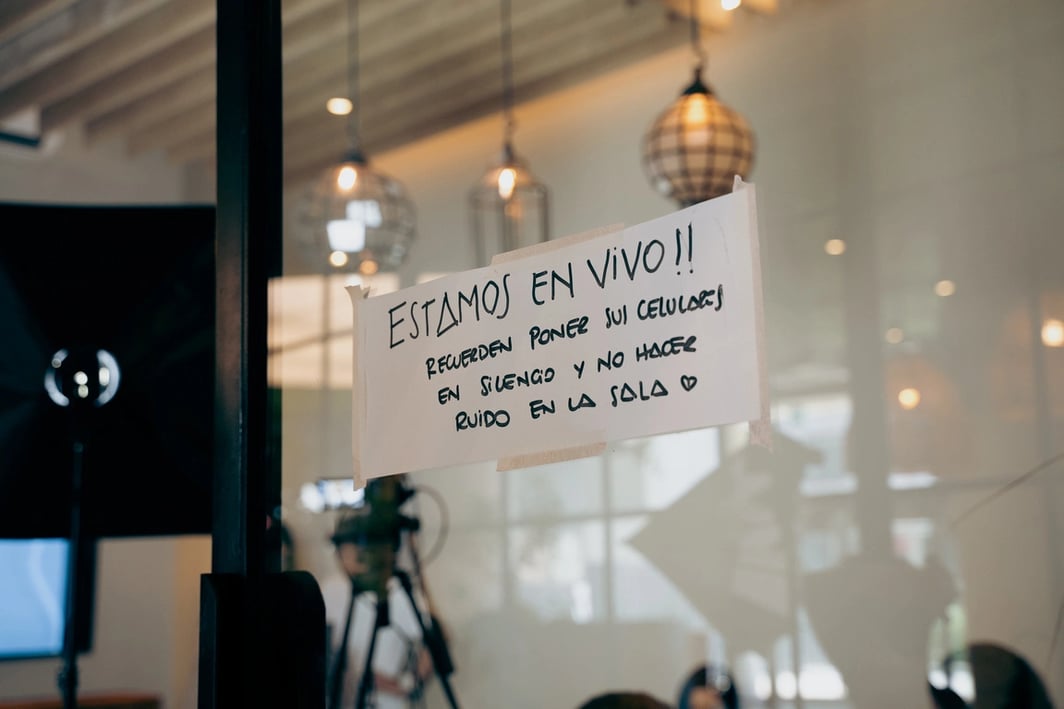 ESTAMOS EN VIVO!!
RECUERDEN PONER SUS CELULARES
EN SILENCIO Y NO HACER
RUIDO EN LA SALA ♡